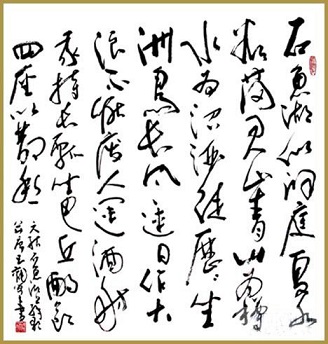 石魚湖似洞庭夏水
欲滿君山青山為樽
水為沼酒徒歷歷坐
洲島長風連日作大
浪不能廢人運酒舫
我持長瓢坐巴丘酌飲
四座以散愁
元結石魚湖上醉歌